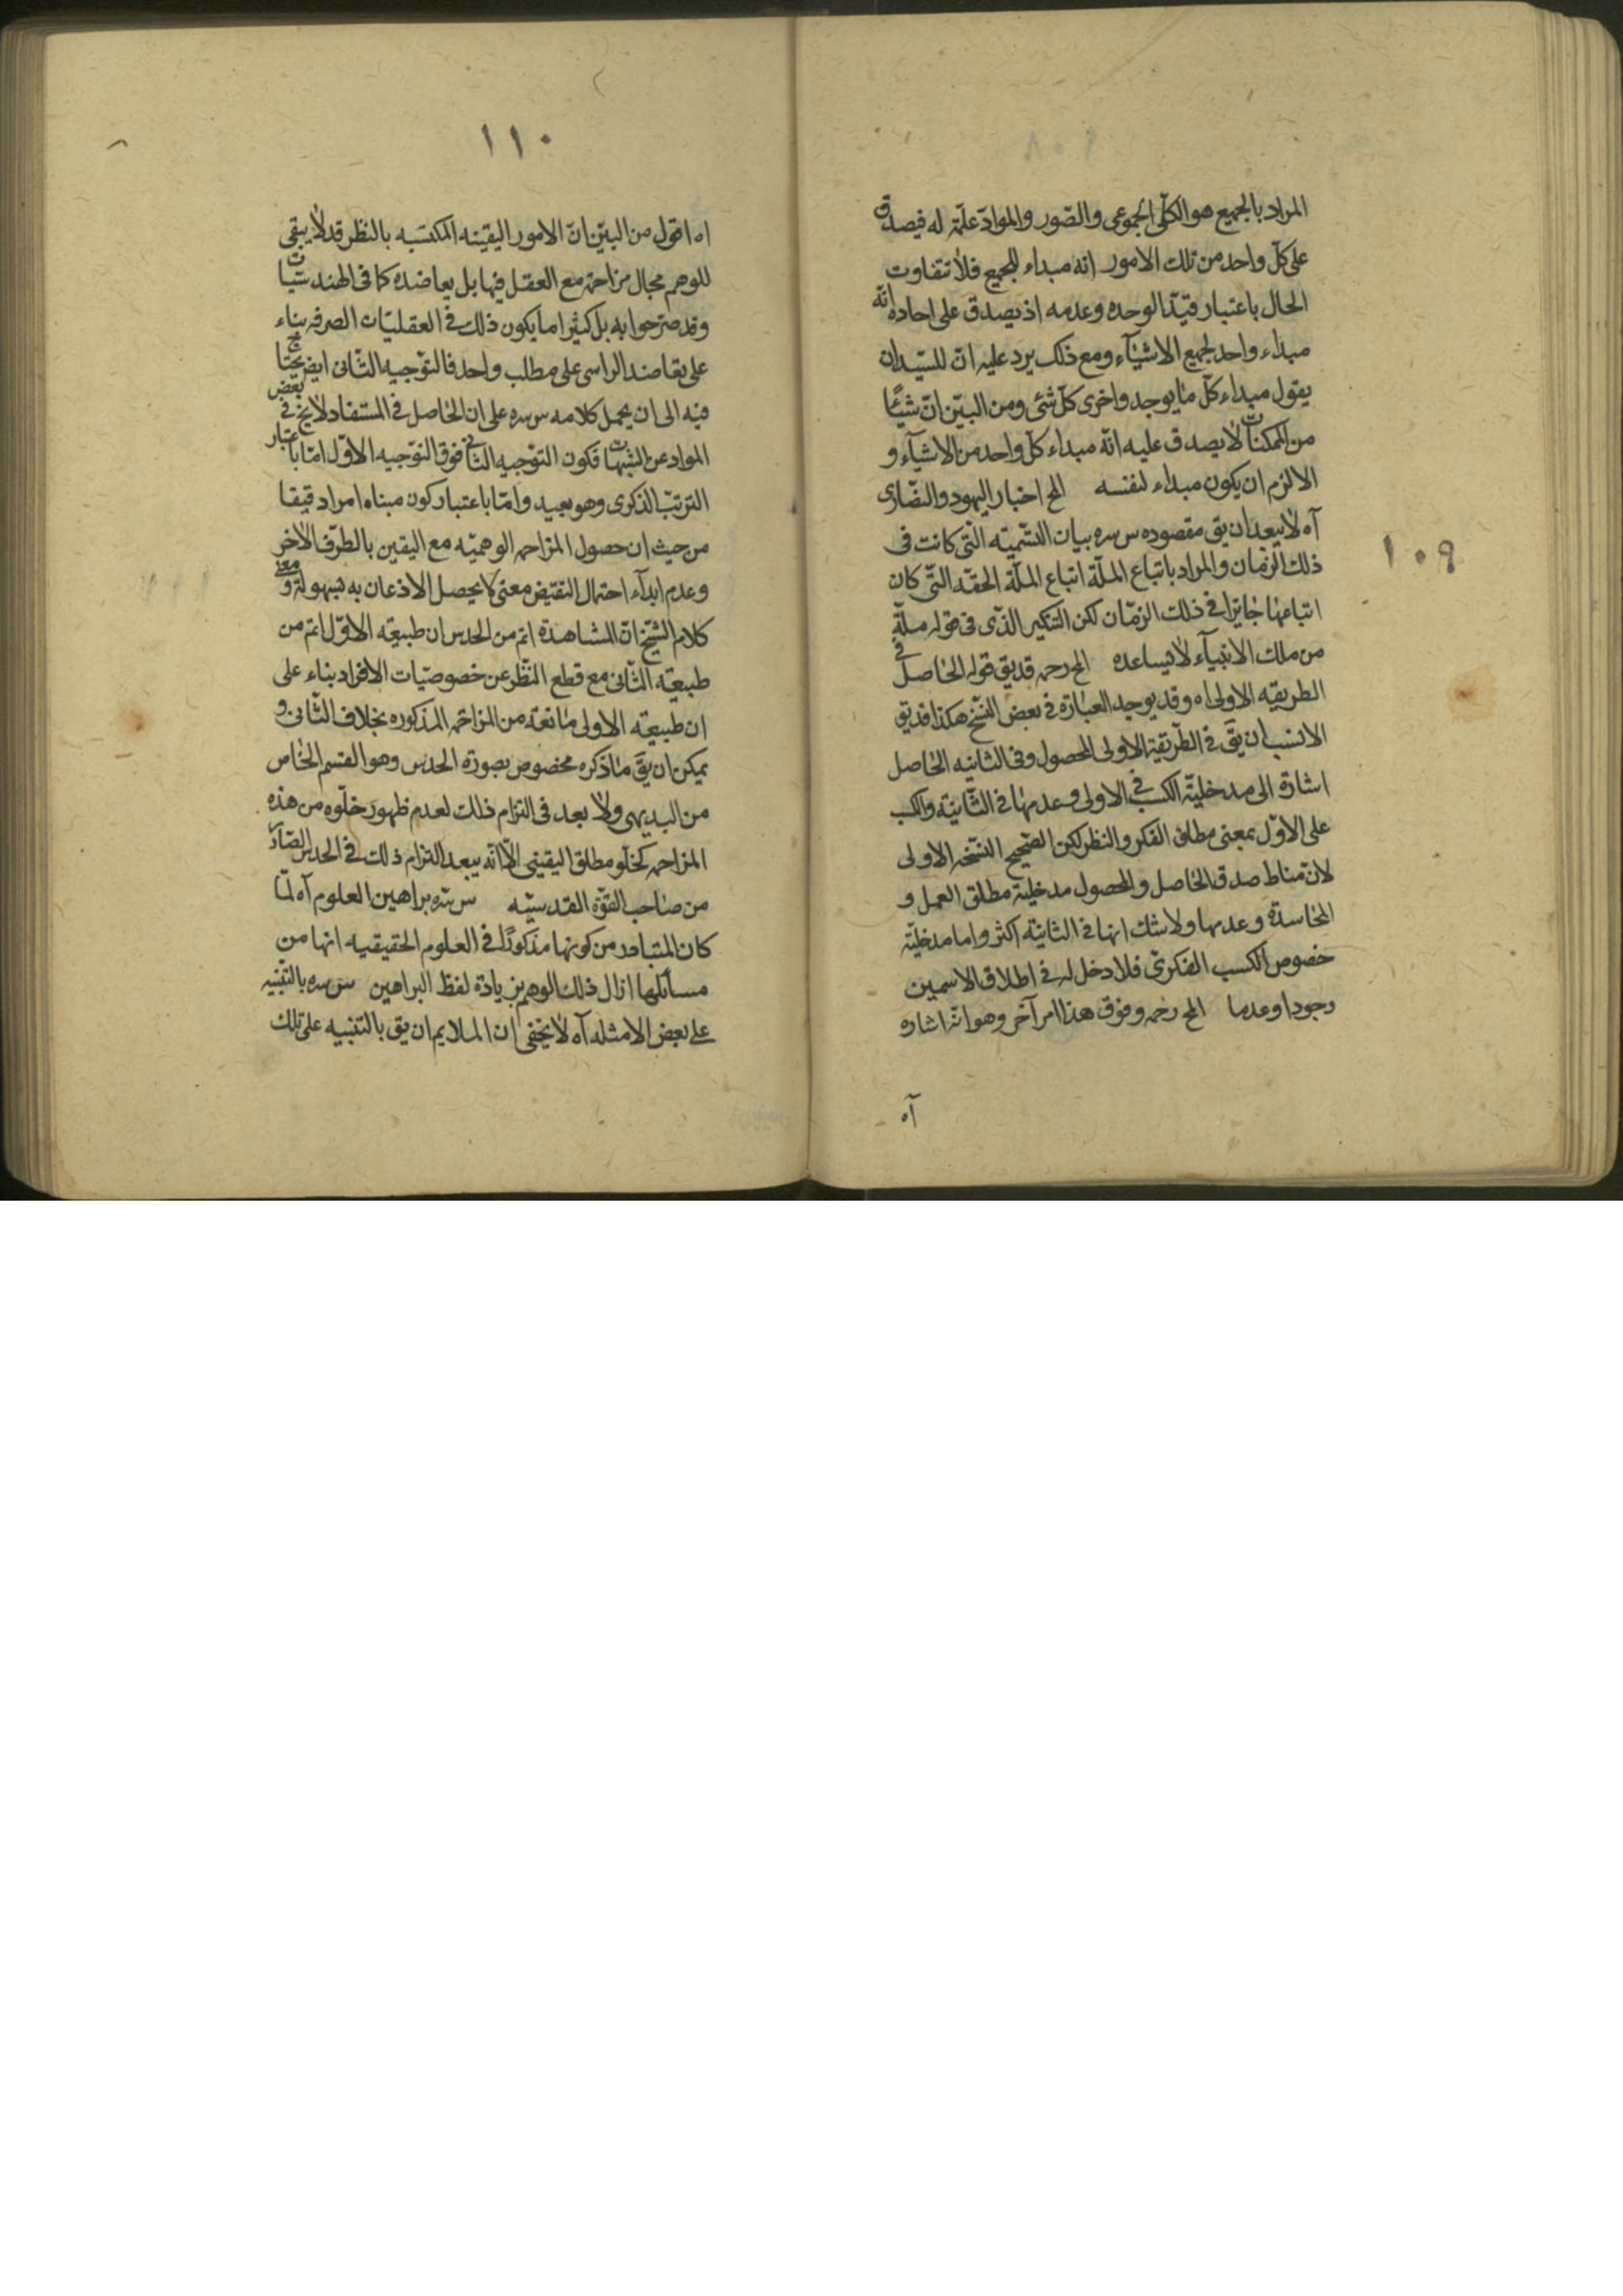 المراد بالجميع هو الكلّى المجموعى والصّور والموادّ علّة له فيصدق
على كلّ واحد من تلك الامور انه مبداء للجميع فلا تتفاوت
الحال باعتبار قيد الوحده وعدمه اذ يصدق على احاده انّه
مبداء واحد لجميع الاشيآء ومع ذلك يرد عليه انّ للسّيد ان
يقول مبداء كلّ ما يوجد واخرى كلّ شئ ومن البيّن انّ شيئًا
من الممكنات لا يصدق عليه انّه مبداء كلّ واحد من الاشيآء و
الا لزم ان يكون مبداء لنفسه المح اخبار اليهود والنصارى
آه لا يبعد ان يق مقصوده س سره بيان التسميته التّى كانت فى
ذلك الزمان والمراد باتباع الملّة اتباع الملّة الحقه التّى كان
اتباعها جايزا فى ذلك الزمّان لكن التنكير الذّى فى قوله ملّة
من ملك الانبيآء لا يساعده المح رحمه قد يق قوله الحاصل فى
الطريقه الاولى اه وقد يوجد العبارة فى بعض النسّخ هكذا قد يق
الانسب ان يقّ فى الطّريقة الاولى المحصول وفى الثانيه الحاصل
اشارة الى مدخليّة الكسب فى الاولى وعدمها فى الثّانيّة والكسب
على الاوّل بمعنى مطلق الفكر والنظر لكن الصّحيح النسّخه الاولى
لانّ مناط صدق الحاصل والمحصول مدخلية مطلق العمل و
وعدمها ولا شك انها فى الثانيّة اكثر واما مدخليّة
خصوص الكسب الفكرىّ فلا دخل له فى اطلاق الاسمين
وجودا وعدما المح رحمه وفوق هذا امر آخر وهو انّه اشاره
آه
١٠٩
١١٠
اه اقول من البيّن انّ الامور اليقينه المكتسبه بالنظر قد لا يبقى
للوهم مجال مزاحمة مع العقل فيها بل يعاضده كما فى الهندسيّات
وقد صرّحوا به بل كثيرا ما يكون ذلك فى العقليّات الصرفه بناء
على تعاضد على مطلب واحد فالتوّجيه الثّانى ايض يحتاج
فيه الى ان يحمل كلامه س سره على ان الحاصل فى المستفاد لا يخ فى بعض
المواد عن الشبهات فكون التوّجيه الثانى فوق التوّجيه الاوّل امّا باعتبار
الترتّب الذكرى وهو بعيد وامّا باعتبار كون مبناه امرا دقيقا
من حيث ان حصول المزاحمه الوهميّه مع اليقين بالطّرف الآخر
وعدم ابدآء احتمال النقيض معنى لا يحصل الاذعان به بسهولة و معنى
كلام الشّيخ انّ المشاهدة اتم من الحدس ان طبيعته الاوّل اتم من
طبيعته الثّانى مع قطع النّظر عن خصوصيّات الافراد بناء على
ان طبيعته الاولى مانعة من المزاحمه المذكوره بخلاف الثّانى و
يمكن ان يقّ ما ذكره مخصوص بصورة الحدس وهو القسم الخاص
من البديهى ولا بعد فى التزام ذلك لعدم ظهور خلّوه من هذه
المزاحمه كخلّو مطلق اليقينى الّا انّه يبعد التزام ذلك فى الحدس الصّادر
من صاحب القوّة القدسيّه س سّره براهين العلوم آه لمّا
كان المتبادر من كونها مذكورًا فى العلوم الحقيقيه انها من
مسائلها ازال ذلك الوهم بزيادة لفظ البراهين س سره بالتّنبيه
على بعض الامثله آه لا يخفى ان الملايم ان يق بالتّنبيه على تلك